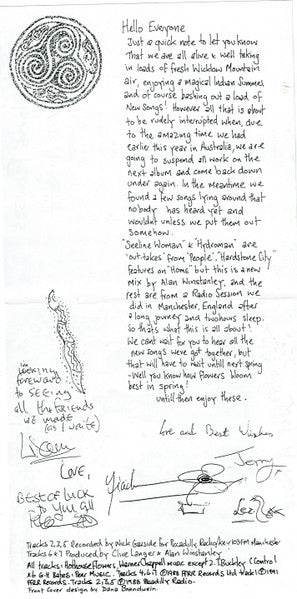 Hello Everyone
Just a quick note to let you know
that we are all alive & well taking
in loads of fresh Wicklow Mountain
air, enjoying a magical Indian Summer,
and of course bashing out a load of
New Songs! However all that is about
to be rudely interrupted when, due
to the amazing time we had
earlier this year in Australia, we are
going to suspend all work on the
next album and come back down
under again. In the meantime we
found a few songs lying around that
nobody has heard yet and
wouldnt unless we put them out
somehow.
"Seeline Woman" & "Hydroman" are
out-takes from "People". "Hardstone City"
features on "Home" but this is a new
mix by Alan Winstanley, and the
rest are from a Radio Session we
did in Manchester, England after
a long journey and two hours sleep.
So thats what this is all about!
We cant wait for you to hear all the
new songs weve got together, but
that will have to wait until next spring
- Well you know how flowers bloom
best in spring!
untill then enjoy these.
Love and Best Wishes
Jerry
looking
forward
to SEEING
all the friends
we made
(as I write)
Liam
LOVE,
BEST OF LUCK
to you all
Fiachna
Leo
Tracks 2,3,5 Recorded by Nick Garside for Piccadilly Radio/Key 103 FM Manchester
Tracks 6 & 7 Produced by Clive Langer & Alan Winstanley
All tracks: Hothouse Flowers, Warner Chappell Music except 2. T. Buckley (Control)
& 6 G. H. Bates: Peer Music. Tracks 4,6,7 ©1988 FFRR Records Ltd track 1 ©1991
FFRR Records. Tracks 2,3,5 1988 Piccadilly Radio.
Front Cover design by Dana Brandwein.